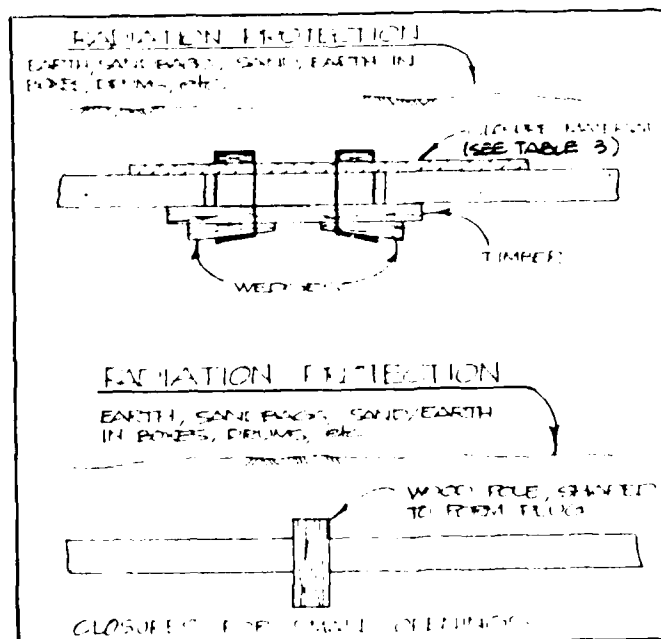 RADIATION PROTECTION
EARTH, SANDBAGS, SAND/EARTH IN
BOXES, DRUMS, etc.
CLOSURE MATERIAL
(SEE TABLE 3)
TIMBER
WEDGES
RADIATION PROTECTION
EARTH, SANDBAGS, SAND/EARTH
IN BOXES, DRUMS, etc.
WOOD POLE, SHAPED
TO FORM PLUG
CLOSURES FOR SMALL OPENINGS